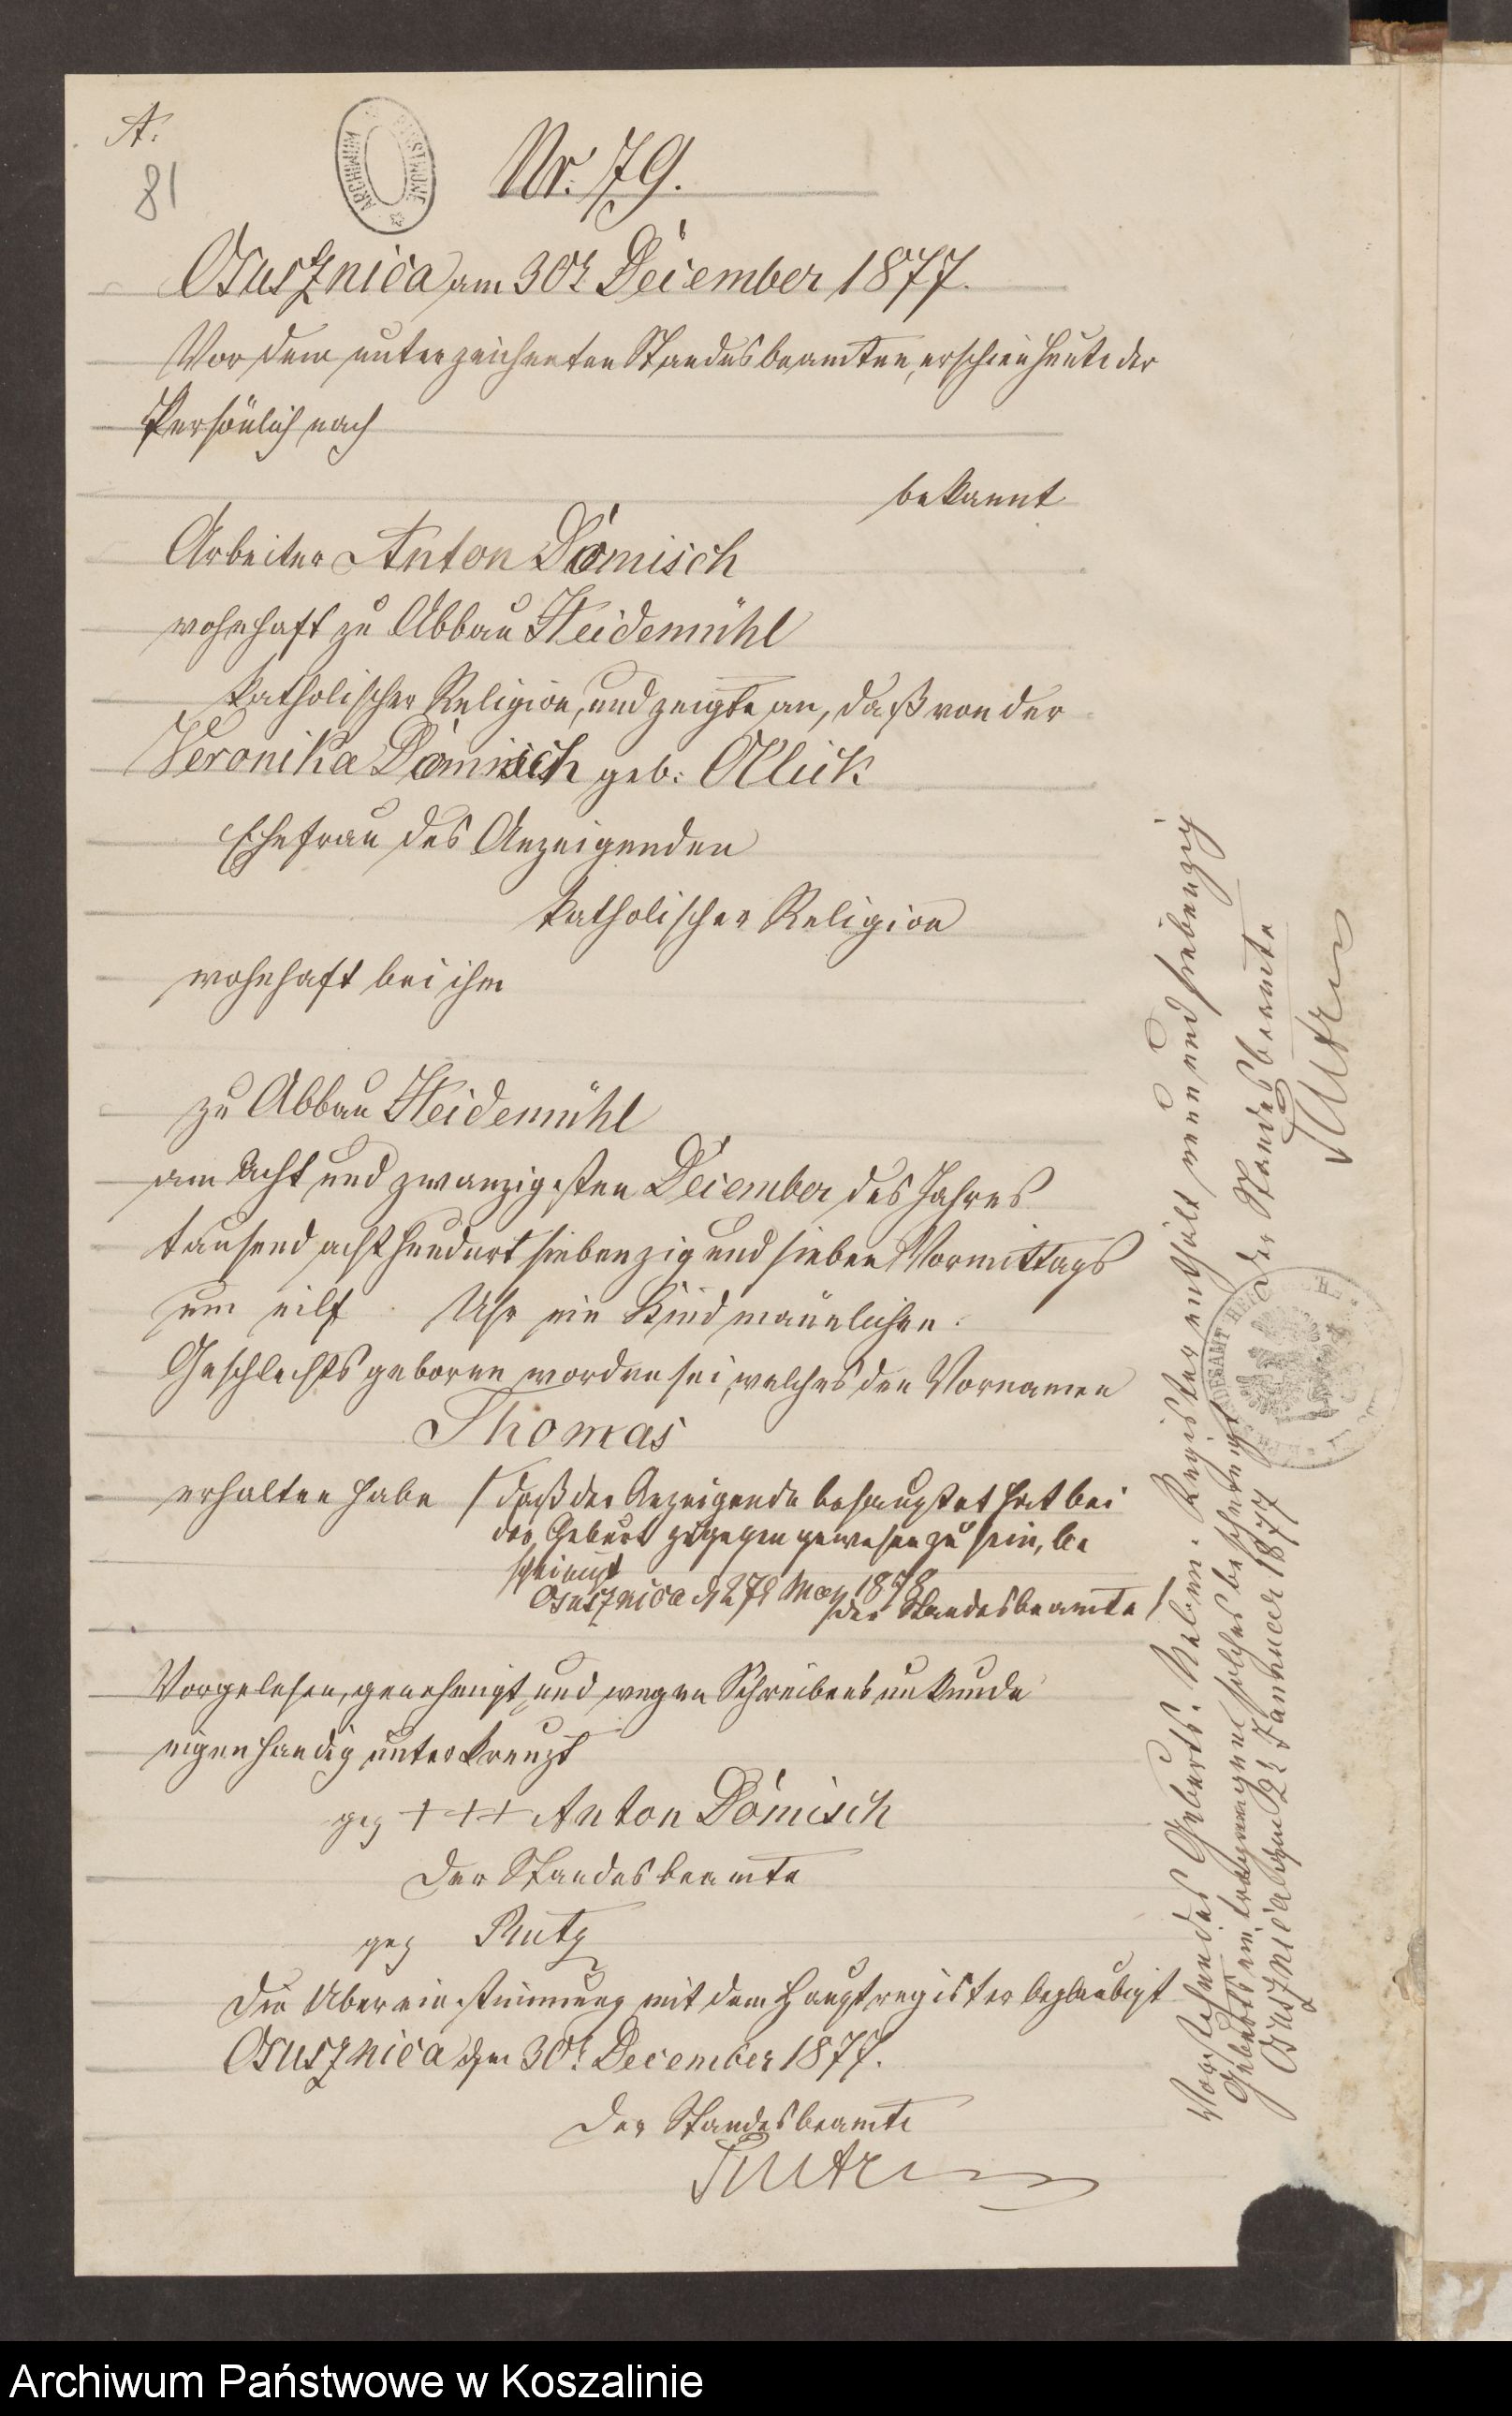 A.
81
ARCHIWUM PAŃSTWOWE
Nr. 79.
Osusznica am 30t December 1877.
Vor dem unterzeichneten Standesbeamten, erschien heute der
Persönlich nach
bekannt
Arbeiter Anton Dömisch
wohnhaft zu Abbau Heidemühl
katholischer Religion, und zeigte an, daß von der
Veronika Dömisch geb: Klick
Ehefrau des Anzeigenden
katholischer Religion
wohnhaft bei ihm
zu Abbau Heidemühl
am acht und zwanzigsten December des Jahres
tausend acht hundert siebenzig und sieben Vormittags
um eilf Uhr ein Kind mänlichen
Geschlechts geboren worden sei, welches den Vornamen
Thomas
erhalten habe / daß der Anzeigende behauptet hat bei
der Geburt zugegen gewesen zu sein, be
scheinigt
Osusznica d 27t May 1878
der Standesbeamte /
Vorgelesen, genehmigt, und wegen Schreibensunkunde
eigenhandig unterkreuzt
gez +++ Anton Dömisch
Der Standesbeamte
gez Rutz
Die Ubereinstimmung mit dem Hauptregister beglaubigt
Osusznica den 30t December 1877.
Der Standesbeamte
Vorstehendes Geburts-Neben-Register enthält neun und siebenzig
Geburtseintragungen solches bescheinigt
Osusznica den 2t Januar 1877
Der Standesbeamte